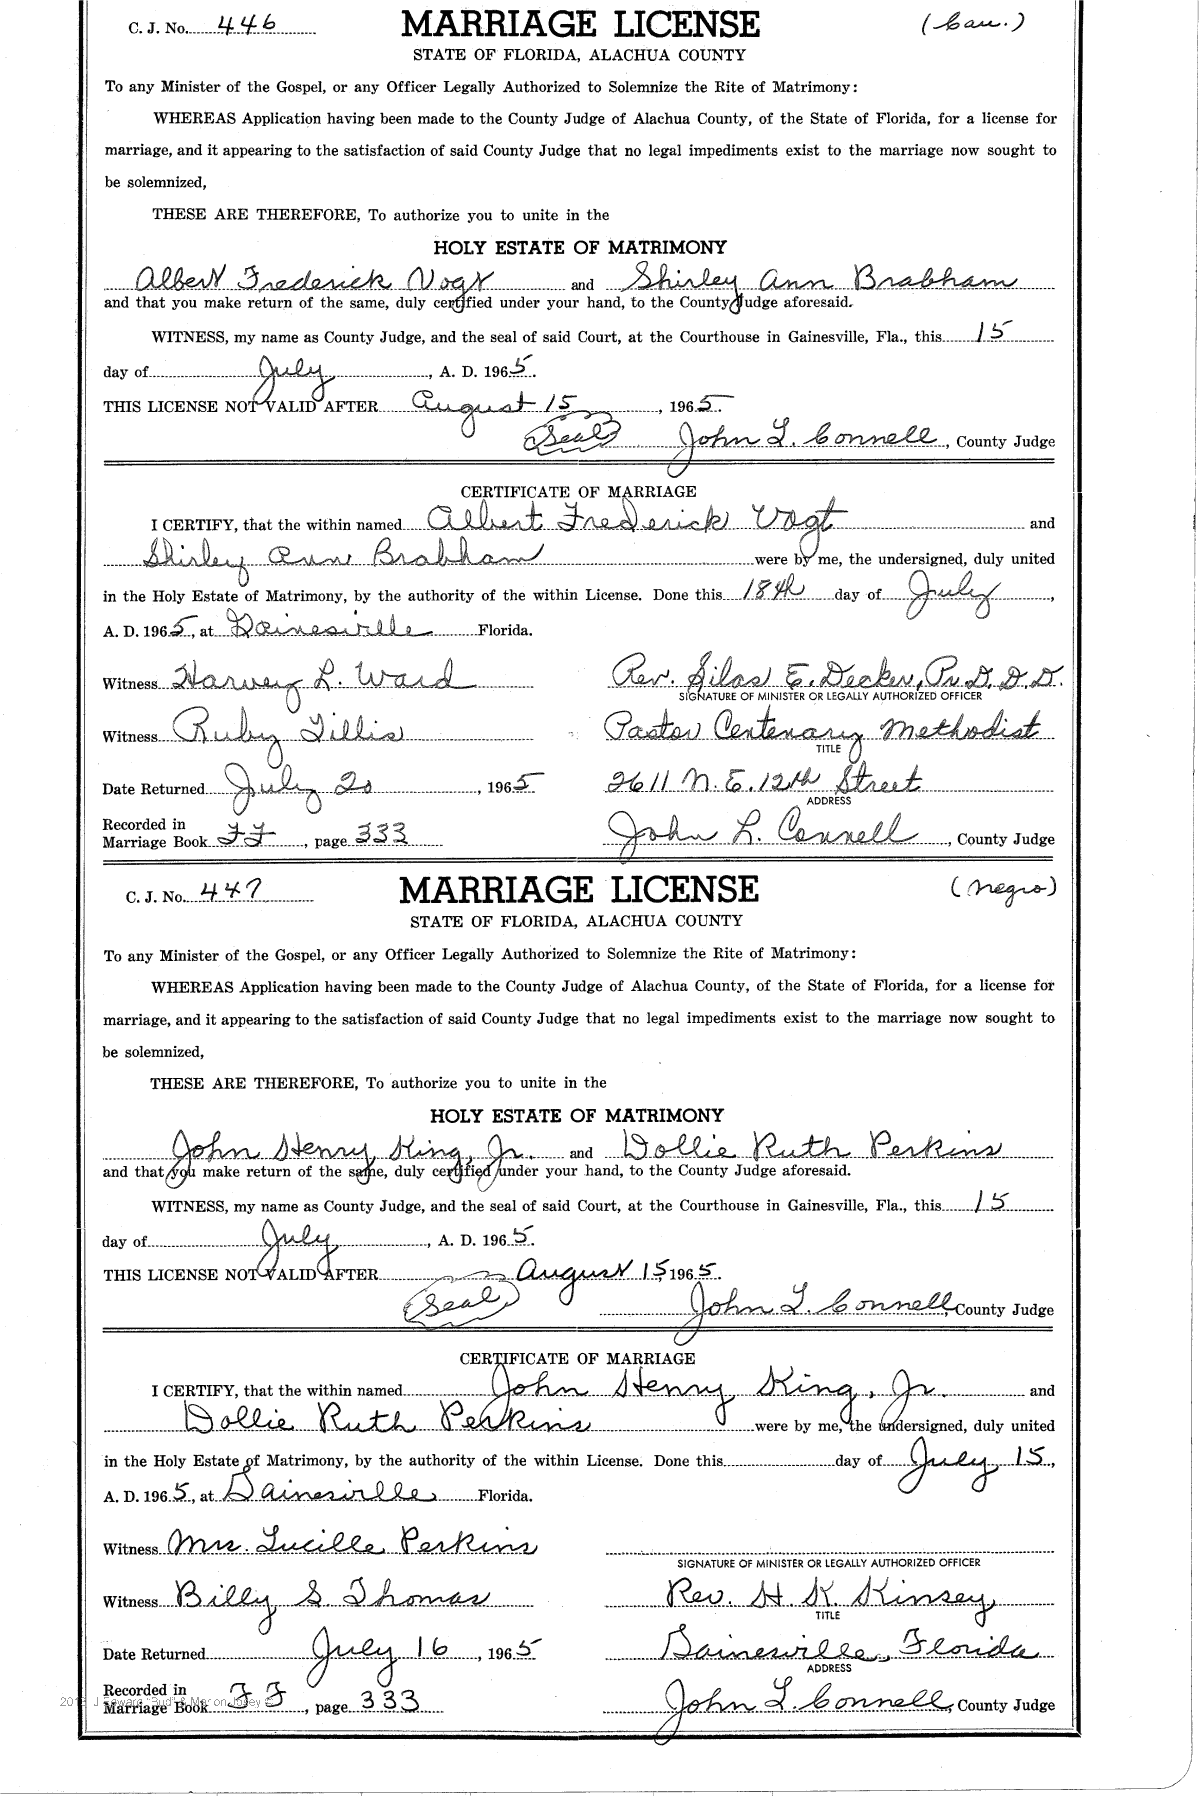 C. J. No. 446 MARRIAGE LICENSE (Cau.)
STATE OF FLORIDA, ALACHUA COUNTY
To any Minister of the Gospel, or any Officer Legally Authorized to Solemnize the Rite of Matrimony:
WHEREAS Application having been made to the County Judge of Alachua County, of the State of Florida, for a license for
marriage, and it appearing to the satisfaction of said County Judge that no legal impediments exist to the marriage now sought to
be solemnized,
THESE ARE THEREFORE, To authorize you to unite in the
HOLY ESTATE OF MATRIMONY
Albert Frederick Vogt and Shirley Ann Brabham
and that you make return of the same, duly certified under your hand, to the County Judge aforesaid.
WITNESS, my name as County Judge, and the seal of said Court, at the Courthouse in Gainesville, Fla., this 15
day of July, A. D. 1965.
THIS LICENSE NOT VALID AFTER August 15, 1965.
(Seal) John L. Connell, County Judge
CERTIFICATE OF MARRIAGE
I CERTIFY, that the within named Albert Frederick Vogt and
Shirley Ann Brabham were by me, the undersigned, duly united
in the Holy Estate of Matrimony, by the authority of the within License. Done this 18th day of July,
A. D. 1965, at Gainesville Florida.
Witness Harvey L. Ward Rev. Silas E. Decker, Pr. D. D. D.
SIGNATURE OF MINISTER OR LEGALLY AUTHORIZED OFFICER
Witness Ruby Tillis Pastor Centenary Methodist
TITLE
Date Returned July 20, 1965 2611 N. E. 12th Street
ADDRESS
Recorded in
Marriage Book FF, page 333 John L. Connell, County Judge
C. J. No. 447 MARRIAGE LICENSE (Negro)
STATE OF FLORIDA, ALACHUA COUNTY
To any Minister of the Gospel, or any Officer Legally Authorized to Solemnize the Rite of Matrimony:
WHEREAS Application having been made to the County Judge of Alachua County, of the State of Florida, for a license for
marriage, and it appearing to the satisfaction of said County Judge that no legal impediments exist to the marriage now sought to
be solemnized,
THESE ARE THEREFORE, To authorize you to unite in the
HOLY ESTATE OF MATRIMONY
John Henry King, Jr. and Dollie Ruth Perkins
and that you make return of the same, duly certified under your hand, to the County Judge aforesaid.
WITNESS, my name as County Judge, and the seal of said Court, at the Courthouse in Gainesville, Fla., this 15
day of July, A. D. 1965.
THIS LICENSE NOT VALID AFTER August 15, 1965.
(Seal) John L. Connell, County Judge
CERTIFICATE OF MARRIAGE
I CERTIFY, that the within named John Henry King, Jr. and
Dollie Ruth Perkins were by me, the undersigned, duly united
in the Holy Estate of Matrimony, by the authority of the within License. Done this day of July, 15,
A. D. 1965, at Gainesville Florida.
Witness Mrs. Lucille Perkins
SIGNATURE OF MINISTER OR LEGALLY AUTHORIZED OFFICER
Witness Billy S. Thomas Rev. H. K. Kinsey,
TITLE
Date Returned July 16, 1965 Gainesville, Florida
ADDRESS
Recorded in
Marriage Book FF, page 333 John L. Connell, County Judge